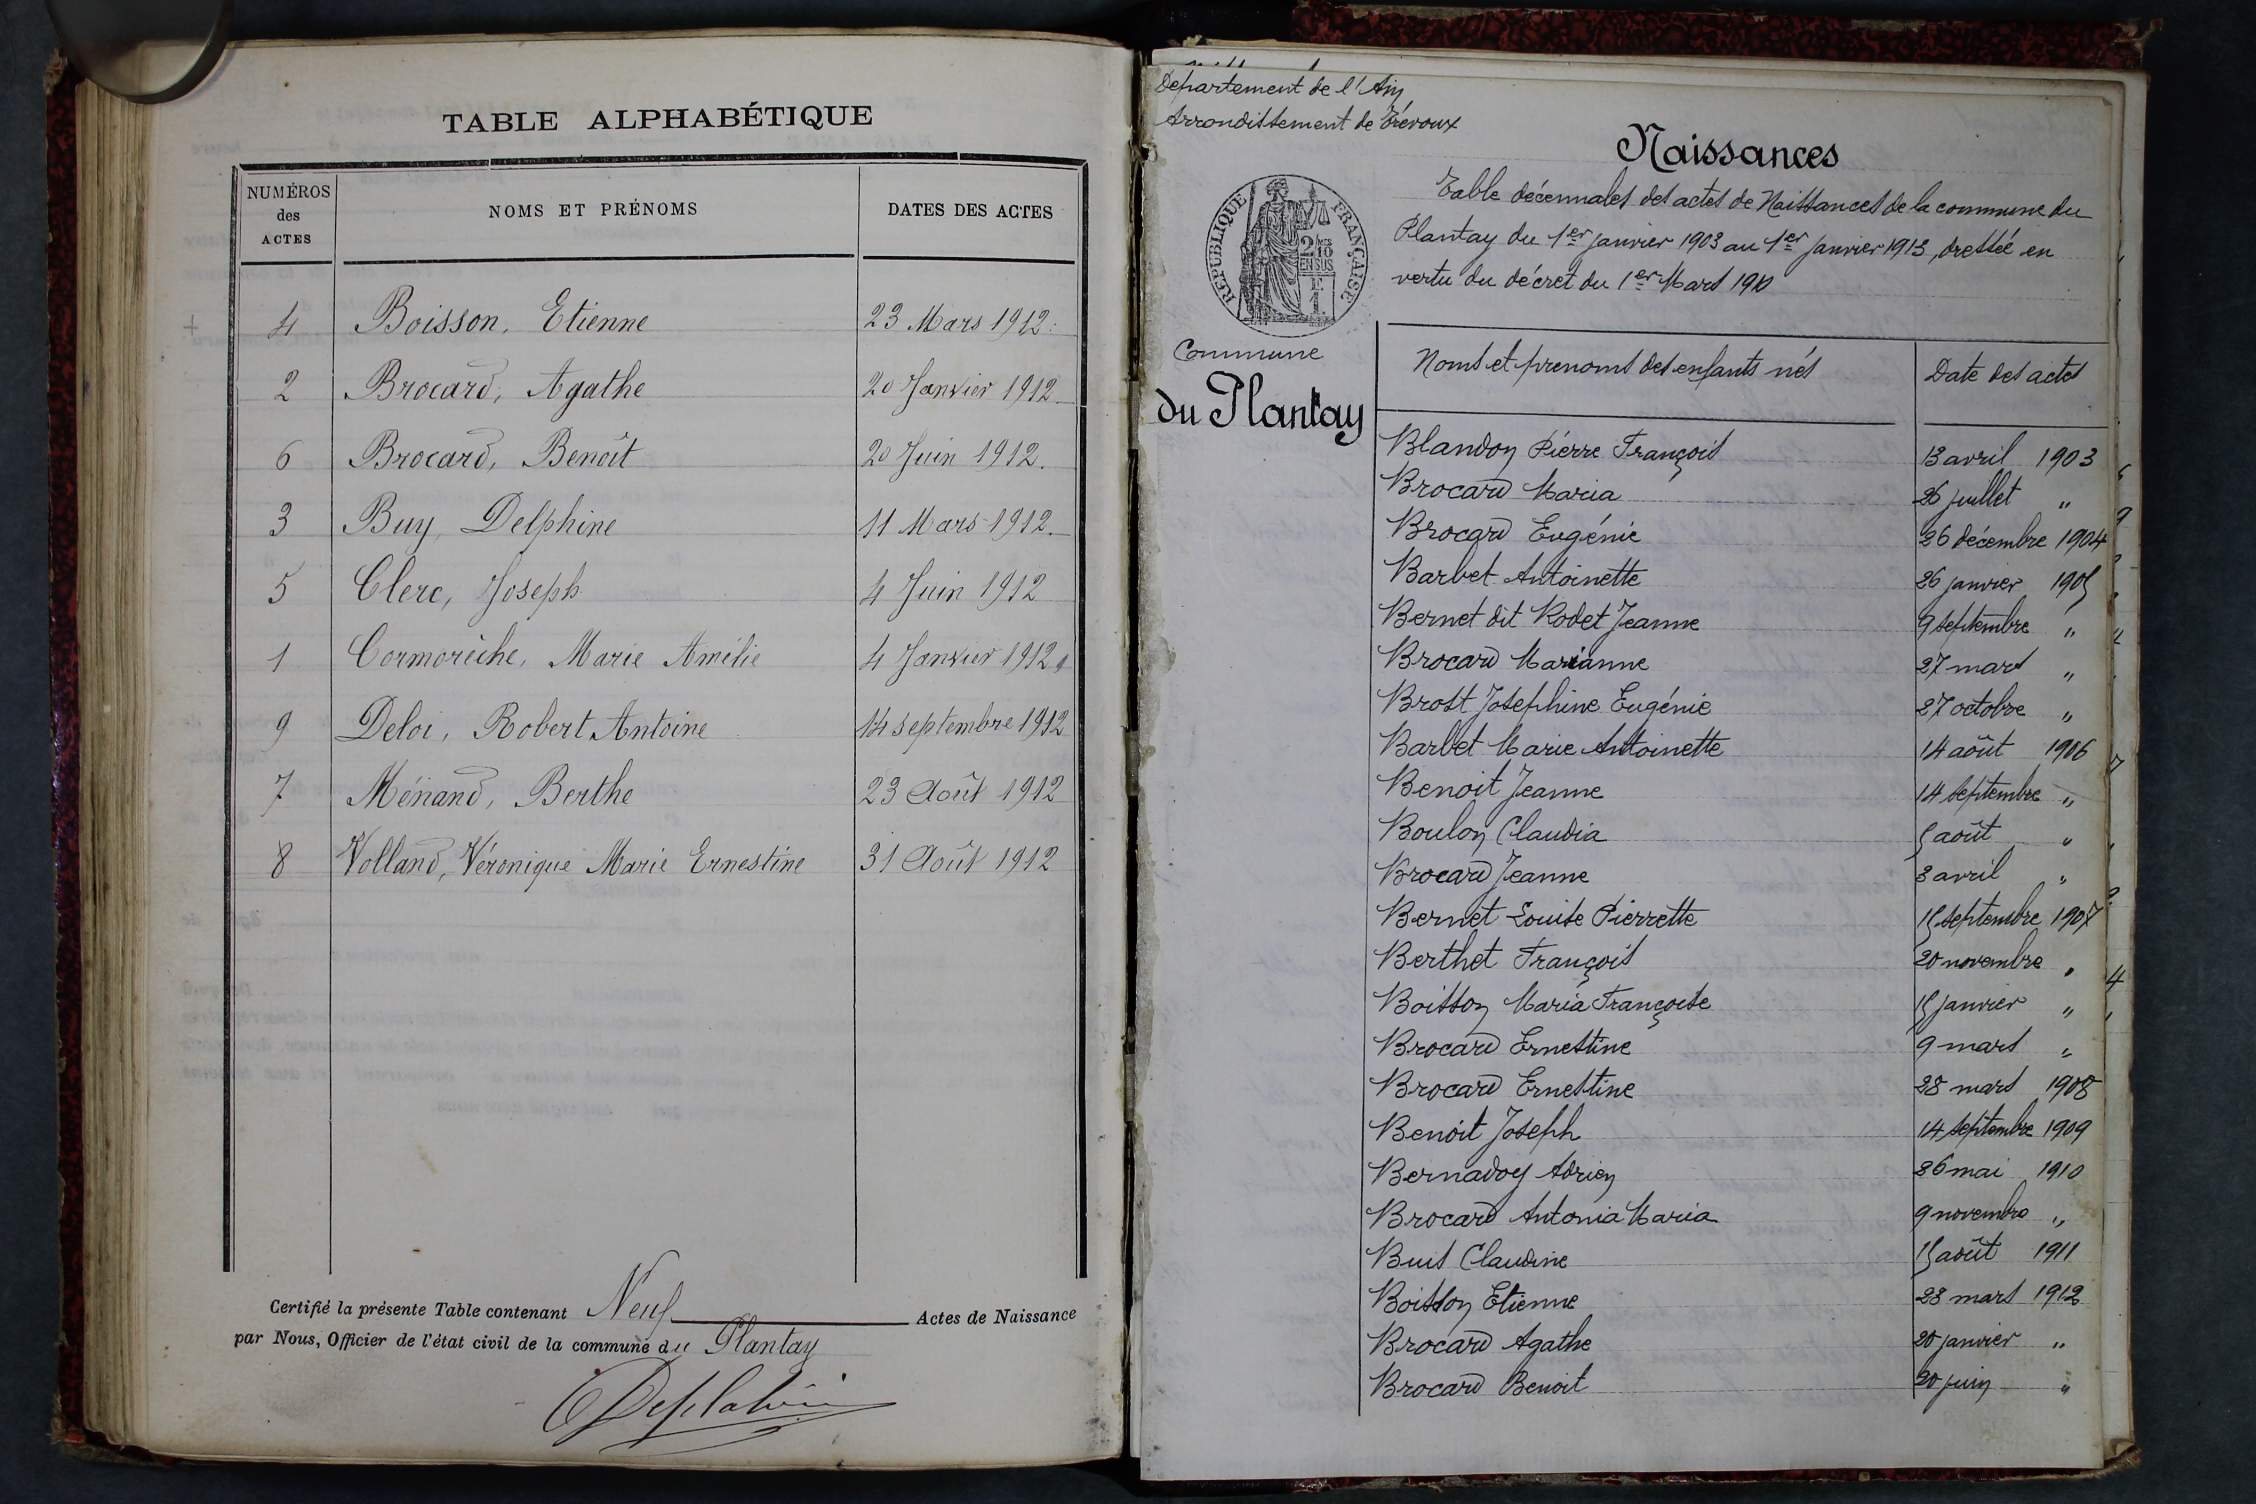 TABLE ALPHABÉTIQUE
NUMÉROS des ACTES NOMS ET PRÉNOMS DATES DES ACTES
4 Boisson, Etienne 23 Mars 1912
2 Brocard, Agathe 20 Janvier 1912
6 Brocard, Benoît 20 Juin 1912.
3 Buy, Delphine 11 Mars 1912.
5 Clerc, Joseph 4 Juin 1912
1 Cormorèche, Marie Amélie 4 Janvier 1912
9 Deloi, Robert Antoine 14 septembre 1912
7 Ménand, Berthe 23 Août 1912
8 Volland, Véronique Marie Ernestine 31 Août 1912
Certifié la présente Table contenant Neuf Actes de Naissance
par Nous, Officier de l'état civil de la commune du Plantay
Departement de l'Ain
Arrondissement de Trévoux
Naissances
RÉPUBLIQUE FRANÇAISE
Table décennales des actes de Naissances de la commune du
Plantay du 1er janvier 1903 au 1er janvier 1913, dressée en
vertu du décret du 1er Mars 1910
Commune
du Plantay
Noms et prenoms des enfants nés Date des actes
Blandon Pierre François 13 avril 1903
Brocard Maria 26 juillet "
Brocard Eugénie 26 décembre 1904
Barbet Antoinette 26 janvier 1905
Bernet dit Rodet Jeanne 9 septembre "
Brocard Marianne 27 mars "
Brost Josephine Eugénie 27 octobre "
Barbet Marie Antoinette 14 août 1906
Benoit Jeanne 14 septembre "
Boulon Claudia 5 août "
Brocard Jeanne 3 avril "
Bernet Louise Pierrette 15 septembre 1907
Berthet François 20 novembre "
Boisson Maria Françoise 15 janvier "
Brocard Ernestine 9 mars "
Brocard Ernestine 28 mars 1908
Benoit Joseph 14 septembre 1909
Bernadon Adrien 26 mai 1910
Brocard Antonia Maria 9 novembre "
Buis Claudine 15 août 1911
Boisson Etienne 23 mars 1912
Brocard Agathe 20 janvier "
Brocard Benoit 20 juin "